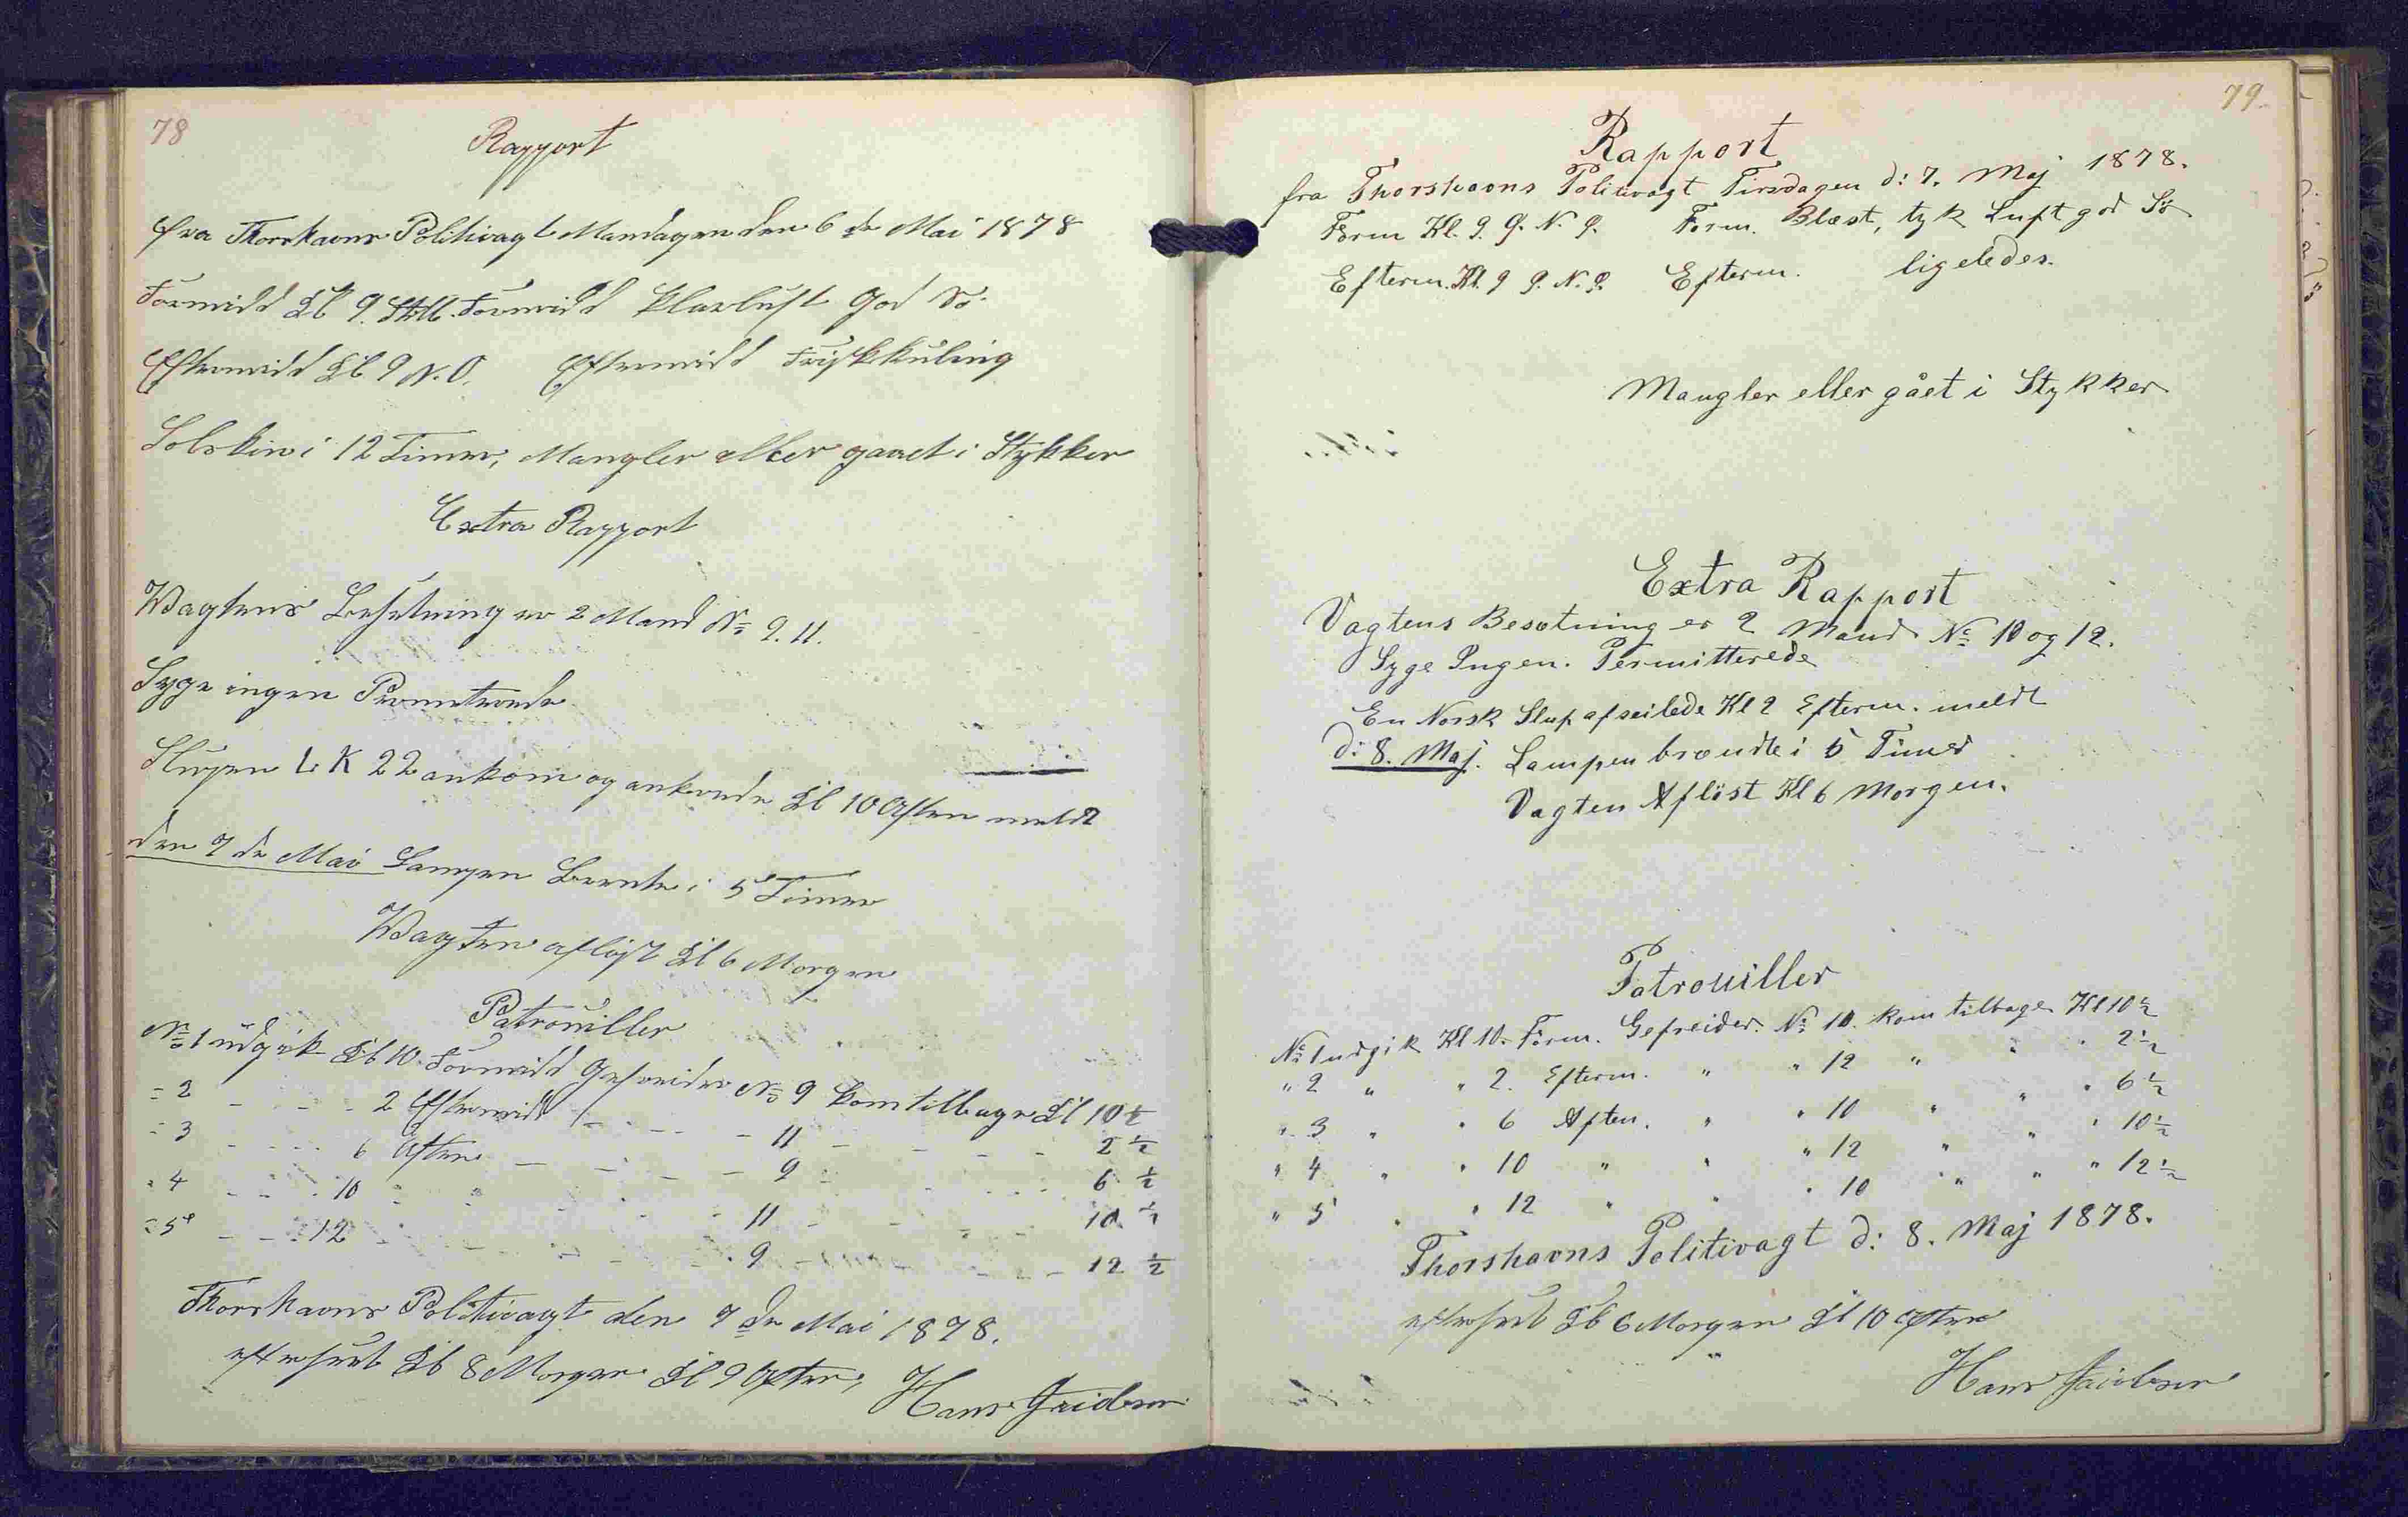 78
Rapport
fra Thorshavns Politivagt Mandagen den 6 de Mai 1878
Formidd Kl 9. Still. Formidd Klarluft God Sö
Eftermidd Kl 9 N.O. Eftermidd Friskkuling
Solskin i 12 Timer, Mangler eller gaaet i Stykker
Extra Rapport
Wagtens Besetning er 2 Mand No 9. 11.
Syge ingen Permeterede
Slupen L K 22 ankom og ankrede Kl 10 Aften meldt
den 7 de Mai Lampen Brente i 5 Timer
Wagten aflöst Kl 6 Morgen
Patrouiller
No 1 udgik Kl 10. Formidd Gefreider No 9 kom tilbage Kl 10 ½
= 2 - - - 2 Eftermidd - - - - 11 - - - - 2 ½
= 3 - - - 6 Aften - - - - 9 - - - - 6 ½
" 4 - - - 10 " - - - - 11 - - - - 10 ½
= 5 - - - 12 - - - - 9 - - - - 12 ½
Thorshavns Politivagt den 7 de Mai 1878.
efterseet Kl 8 Morgen Kl 9 Aften, Hans Jacobsen
79.
Rapport
fra Thorshavns Politivagt Tirsdagen d: 7. Maj 1878.
Form Kl. 9. N. Form. Blæst, tyk Luft god Sö
Efterm. Kl. 9 N. Efterm. ligeledes.
Mangler eller gået i Stykker
Extra Rapport
Vagtens Besætning er 2 Mand No 10 og 12.
Syge Ingen. Permitterede
En Norsk Slup afseilede Kl 2 Efterm. meldt
d: 8. Maj. Lampen brændte i 5 Timer
Vagten Aflöst Kl 6 Morgen.
Patrouiller
No 1 udgik Kl 10. Form. Gefreider. No 10. kom tilbage Kl 10 ½
" 2 " " 2. Efterm. " " 12 " " " 2 ½
" 3 " " 6 Aften. " " 10 " " " 6 ½
" 4 " " 10 " " " 12 " " " 10 ½
" 5 " " 12 " " " 10 " " " 12 ½
Thorshavns Politivagt d: 8. Maj 1878.
efterseet Kl 6 Morgen Kl 10 Aften
Hans Jacobsen